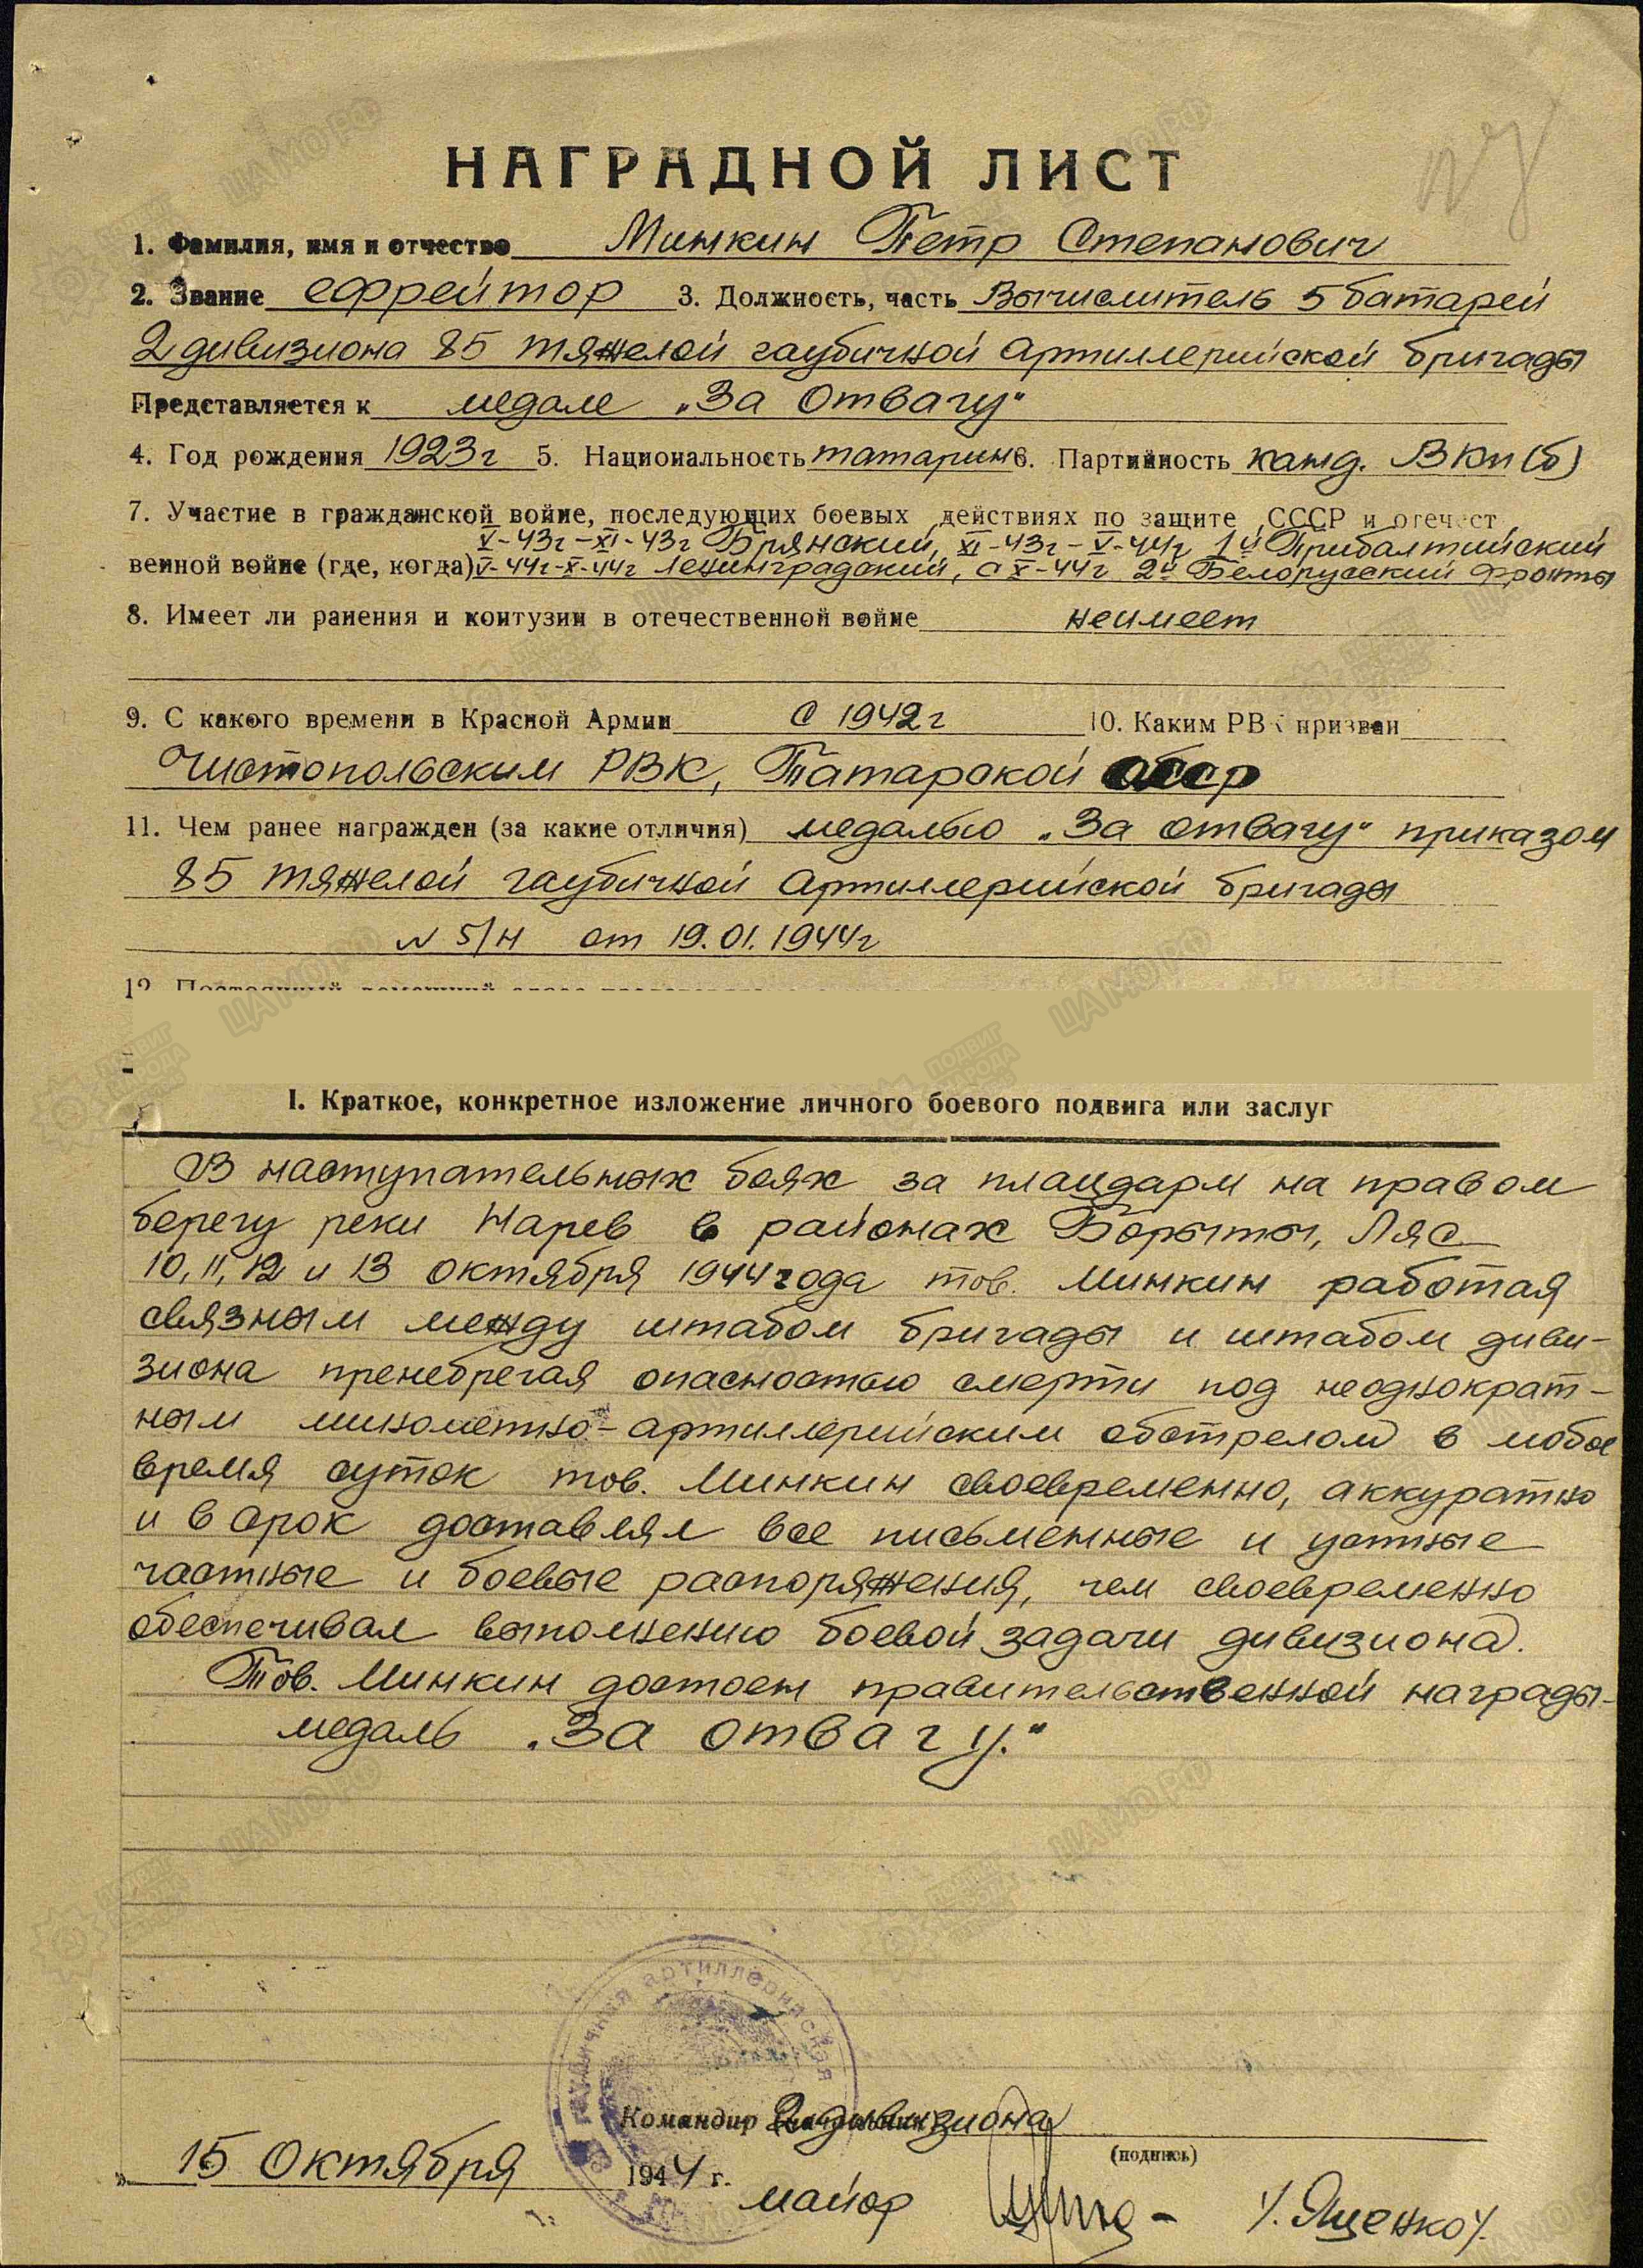 НАГРАДНОЙ ЛИСТ
1. Фамилия, имя и отчество Минкин Петр Степанович
2. Звание ефрейтор 3. Должность, часть Вычислитель 5 батареи
2 дивизиона 85 тяжелой гаубичной артиллерийской бригады
Представляется к медале „За Отвагу"
4. Год рождения 1923г 5. Национальность татарин 6. Партийность канд. ВКП(б)
7. Участие в гражданской войне, последующих боевых действиях по защите СССР и отечест
V-43г-XI-43г Брянский, XI-43г-V-44г 1й Прибалтийский
венной войне (где, когда) V-44г-X-44г Ленинградский, с X-44г 2й Белорусский фронты
8. Имеет ли ранения и контузии в отечественной войне неимеет
9. С какого времени в Красной Армии С 1942г 10. Каким РВК призван
Чистопольским РВК, Татарской АССР
11. Чем ранее награжден (за какие отличия) медалью „За отвагу" приказом
85 тяжелой гаубичной артиллерийской бригады
N 5/н от 19.01.1944г
12.
I. Краткое, конкретное изложение личного боевого подвига или заслуг
В наступательных боях за плацдарм на правом
берегу реки Нарев в районах Борыты, Ляс
10, 11, 12 и 13 октября 1944 года тов. Минкин работая
связным между штабом бригады и штабом диви-
зиона пренебрегая опасностью смерти под неоднократ-
ным минометно-артиллерийским обстрелом в любое
время суток тов. Минкин своевременно, аккуратно
и в срок доставлял все письменные и устные
частные и боевые распоряжения, чем своевременно
обеспечивал выполнению боевой задачи дивизиона.
Тов. Минкин достоен правительственной награды-
медаль „За отвагу."
Командир 2 дивизиона
(подпись)
„ 15 Октября 1944 г.
майор /Ященко/.